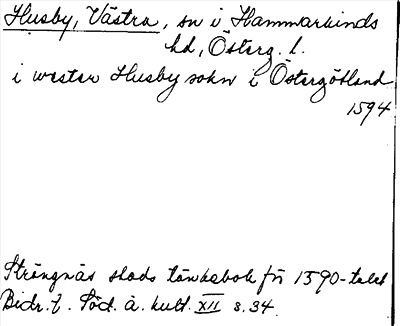 Husby, Västra, sn i Hammarkinds
hd, Österg. l.
i wester Husby sokn i Östergötland
1594
Strängnäs stads tänkebok för 1590-talet
Bidr. t. Söd. ä. kult. XII s. 34.